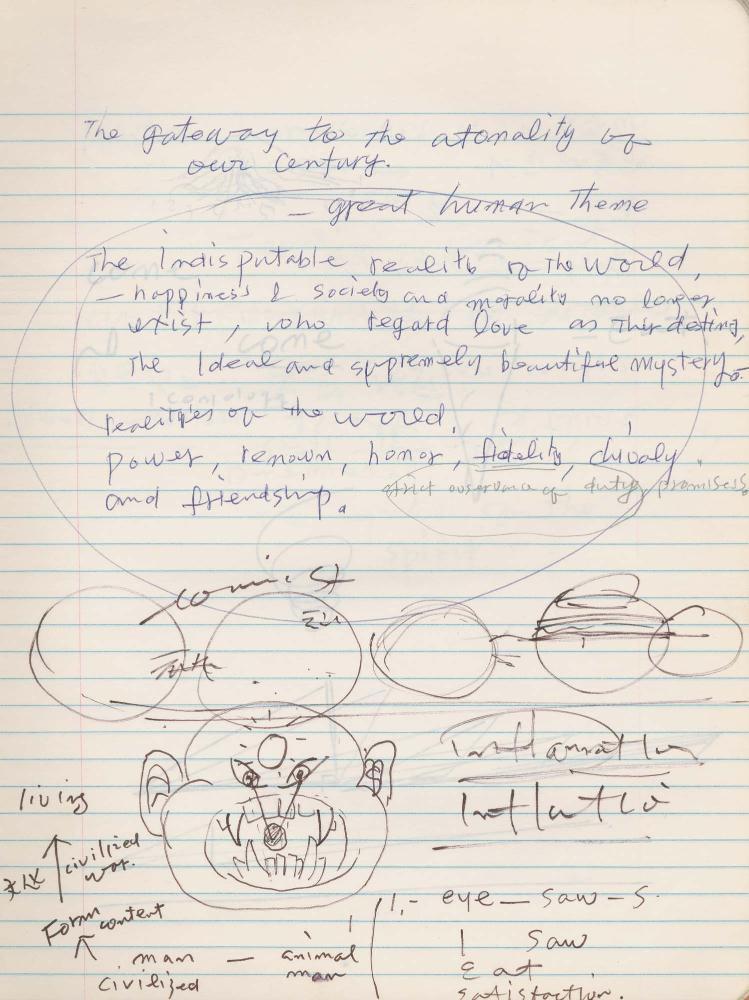 The gateway to the atonality of
our Century.
— great human Theme
The Indisputable reality of The world,
— happiness & society and morality no longer
exist, who regard love as Their destiny,
The Ideal and supremely beautiful mystery
realities of the world.
power, renown, honor, fidelity, chivaly
and friendship.
strict observance of duty, promisess
comic st
Inflammation
Inflatio
living
civilized
war.
Form content
man — animal
civilized man
1,- eye — saw — s.
I saw
Eat
satisfaction.